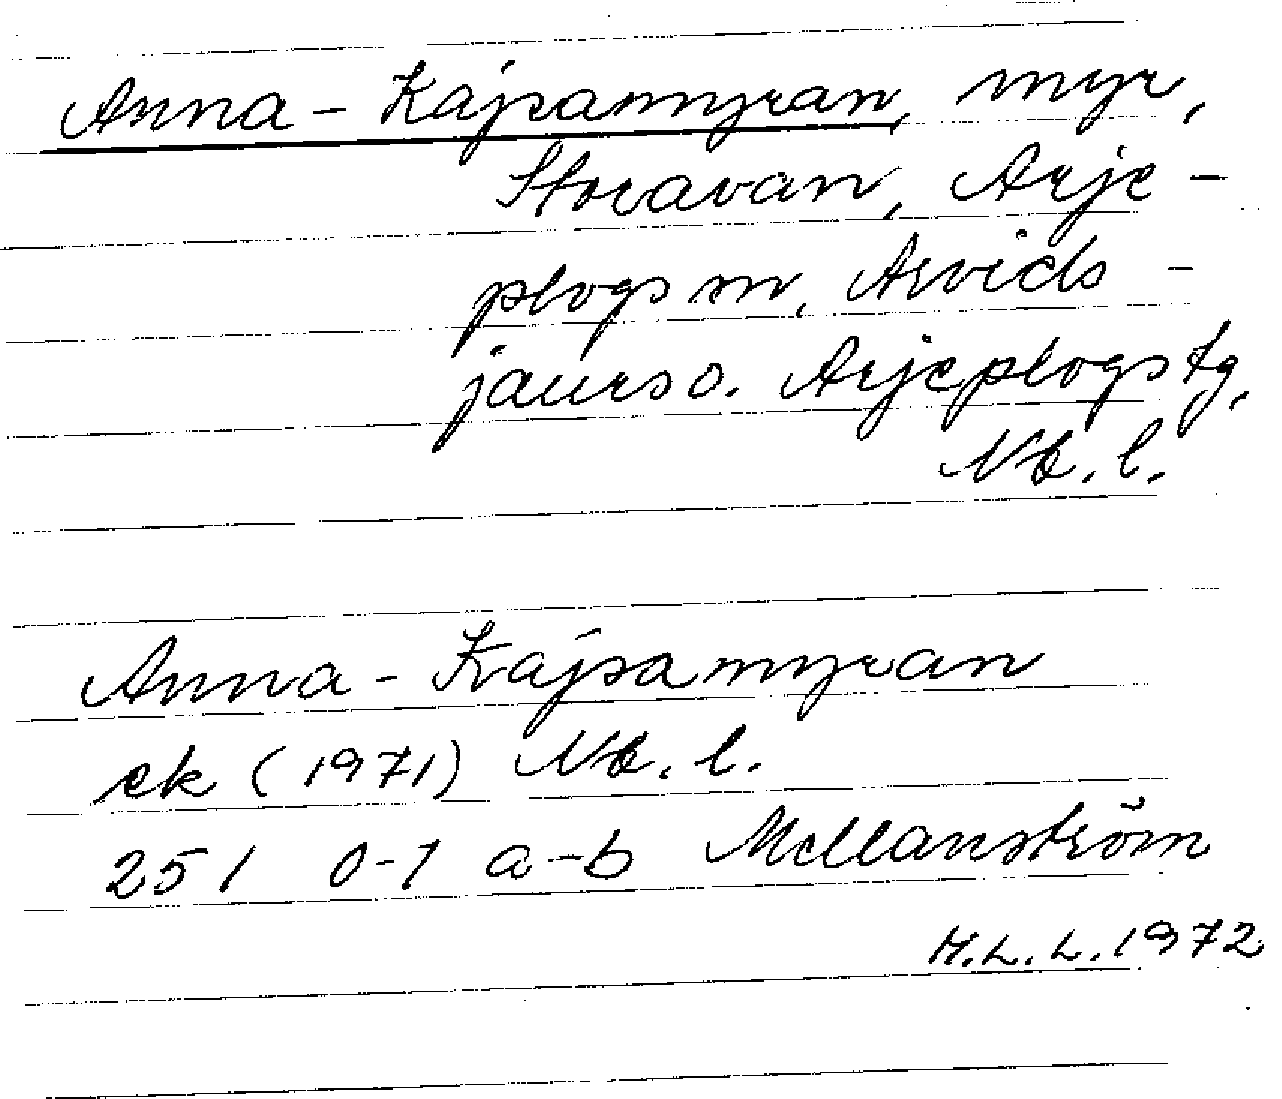 Anna-Kajsamyran, myr,
Storavan, Arje-
plogs sn, Arvids-
jaurs o. Arjeplogs tg,
Nb. l.
Anna-Kajsamyran
ek (1971) Nb. l.
251 0-1 a-b Mellanström
H.L.L. 1972